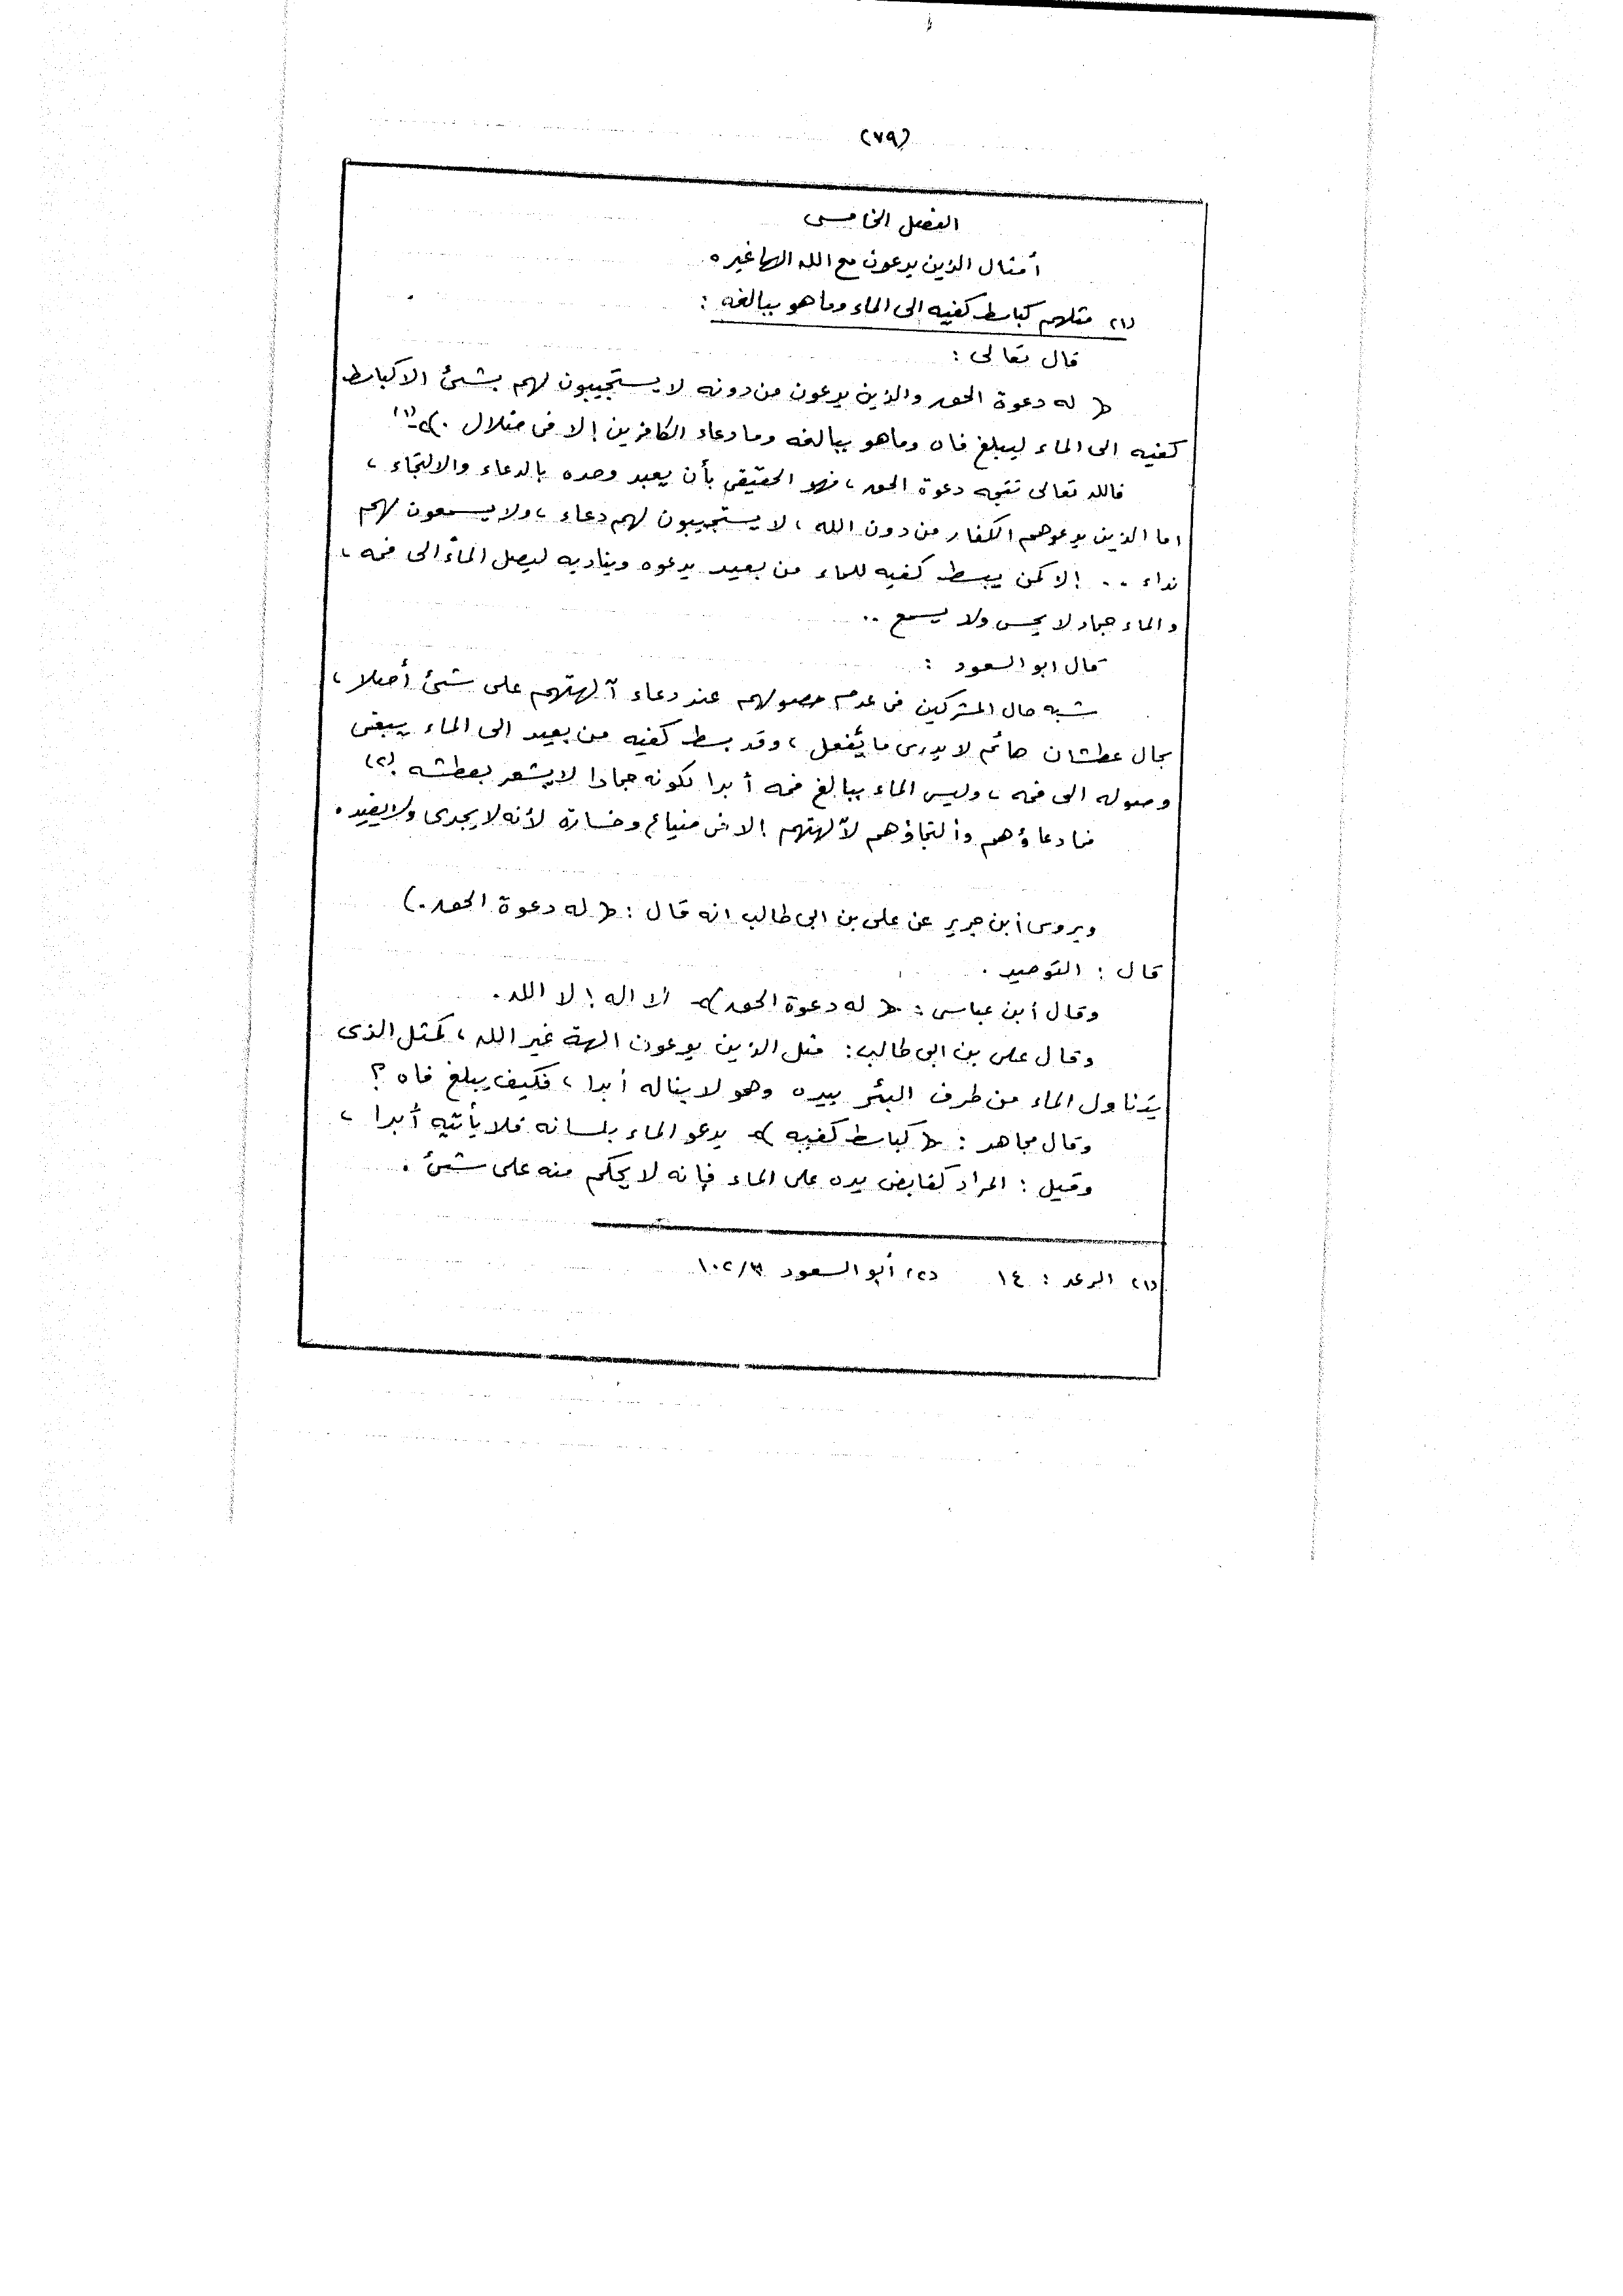 (٧٩)
الفصل الخامس
أمثال الذين يدعون مع الله الها غيره
(١) مثلهم كباسط كفيه الى الماء وما هو ببالغه :
قال تعالى :
﴿ له دعوة الحق والذين يدعون من دونه لا يستجيبون لهم بشئ الا كباسط
كفيه الى الماء ليبلغ فاه وما هو ببالغه وما دعاء الكافرين إلا فى ضلال . ﴾ (١)
فالله تعالى تتجه دعوة الحق ، فهو الحقيقى بأن يعبد وحده بالدعاء والالتجاء ،
اما الذين يدعوهم الكفار من دون الله ، لا يستجيبون لهم دعاء ، ولا يسمعون لهم
نداء .. إلا كمن يبسط كفيه للماء من بعيد يدعوه ويناديه ليصل الماء الى فمه ،
والماء جماد لا يحس ولا يسمع ..
قال ابو السعود :
شبه حال المشركين فى عدم حصولهم عند دعاء آلهتهم على شئ أصلا ،
بحال عطشان هائم لا يدرى ما يفعل ، وقد بسط كفيه من بعيد الى الماء يبغى
وصوله الى فمه ، وليس الماء ببالغ فمه أبدا لكونه جمادا لا يشعر بعطشه . (٢)
فما دعاؤهم والتجاؤهم لآلهتهم إلا فى ضياع وخسارة لأنه لا يجدى ولا يفيد .
ويروى أبن جرير عن على بن ابى طالب انه قال : ﴿ له دعوة الحق . )
قال : التوحيد .
وقال أبن عباس : ﴿ له دعوة الحق ﴾ لا اله إلا الله .
وقال على بن ابى طالب : مثل الذين يدعون الهة غير الله ، كمثل الذى
يتناول الماء من طرف البئر بيده وهو لا يناله أبدا ، فكيف يبلغ فاه ؟
وقال مجاهد : ﴿ كباسط كفيه ﴾ يدعو الماء بلسانه فلا يأتيه أبدا ،
وقيل : المراد كقابض يده على الماء فإنه لا يحكم منه على شئ .
(١) الرعد : ١٤ (٢) أبو السعود ١٠٢/٣